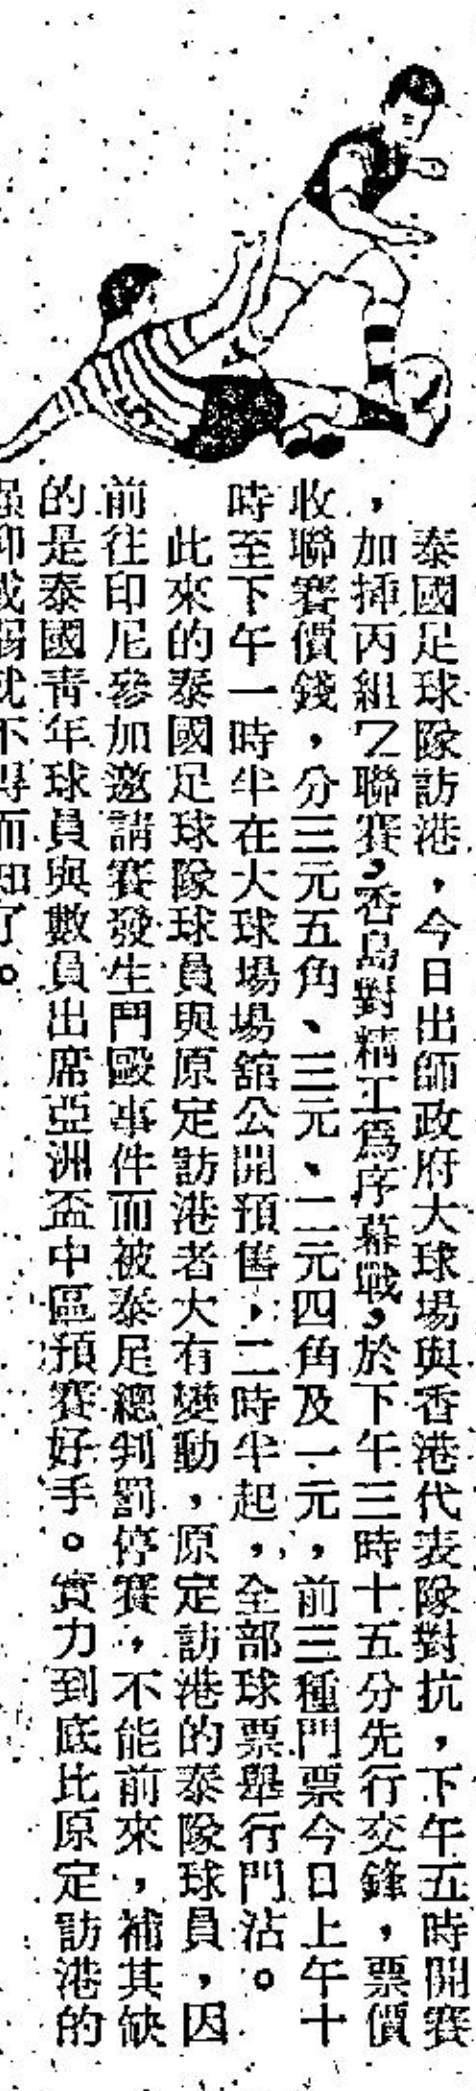 泰國足球隊訪港，今日出師政府大球場與香港代表隊對抗，下午五時開賽
，加揷丙組乙聯賽，香島對精工爲序幕戰，於下午三時十五分先行交鋒，票價
收聯賽價錢，分三元五角、三元、二元四角及一元，前三種門票今日上午十
時至下午一時半在大球場場館公開預售，二時半起，全部球票舉行門沽。
此來的泰國足球隊球員與原定訪港者大有變動，原定訪港的泰隊球員，因
前往印尼參加邀請賽發生鬥毆事件而被泰足總判罰停賽，不能前來，補其缺
的是泰國靑年球員與數員出席亞洲盃中區預賽好手。實力到底比原定訪港的
不得而知了。